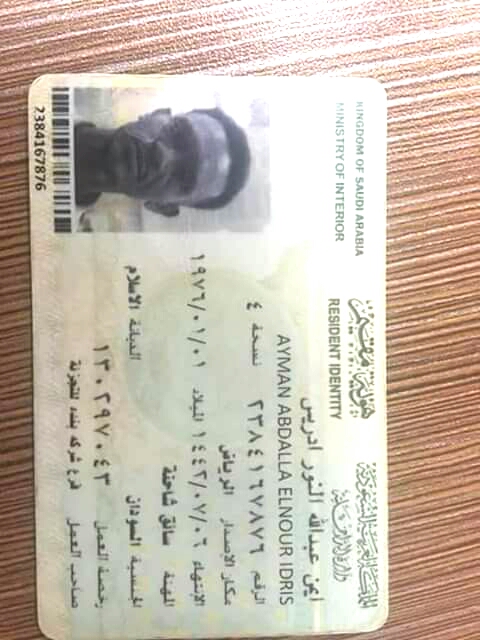 المملكة العربية السعودية
وزارة الداخلية
KINGDOM OF SAUDI ARABIA
MINISTRY OF INTERIOR
هوية مقيم
RESIDENT IDENTITY
ايمن عبدالله النور ادريس
AYMAN ABDALLA ELNOUR IDRIS
الرقم ٢٣٨٤١٦٧٨٧٦ نسخة ٤
مكان الإصدار الرياض
الإنتهاء ١٤٤٣/٠٧/٠٦ الميلاد ١٩٧٦/٠١/٠١
المهنة سائق شاحنة
الجنسية السودان الديانة الاسلام
رخصة العمل ١٣٠٢٩٧٠٤٣
صاحب العمل فرع شركه بنده للتجزئة
2384167876